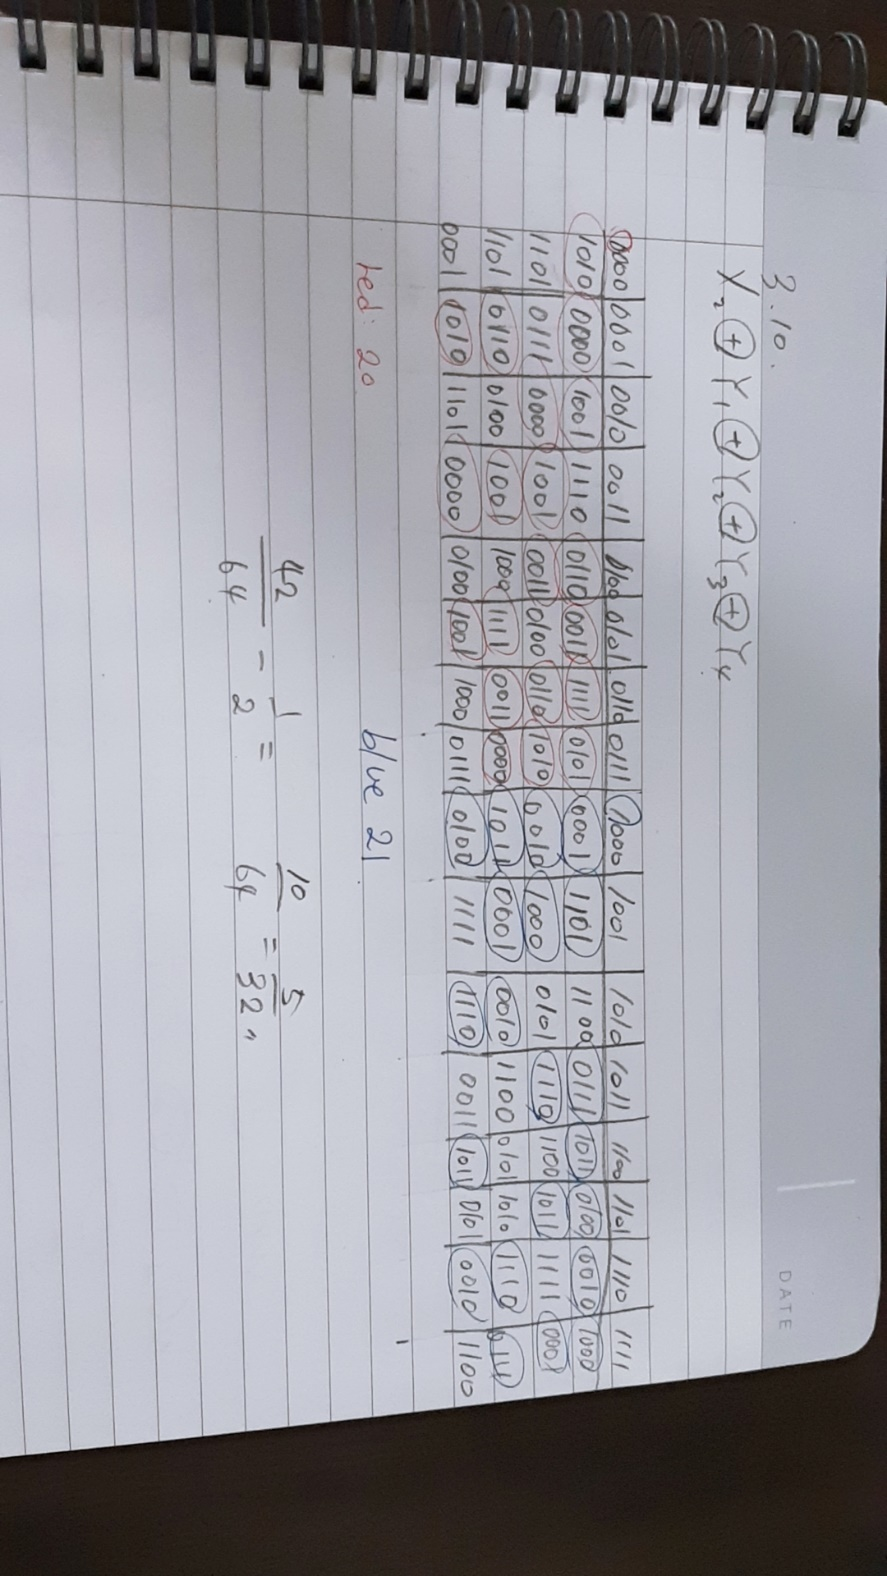 DATE
3.10.
X₂ ⊕ Y₁ ⊕ Y₂ ⊕ Y₃ ⊕ Y₄
0000 0001 0010 0011 0100 0101 0110 0111 1000 1001 1010 1011 1100 1101 1110 1111
1010 0000 1001 1110 0110 0011 1111 0101 0001 1101 1100 0111 1011 0100 0010 1000
1101 0111 0000 1001 0011 0100 0110 1010 0010 1000 0101 1110 1100 1011 1111 0001
1101 0110 0100 1001 1000 1111 0011 0000 1011 0001 0010 1100 0101 1010 1110 0111
0001 1010 1101 0000 0100 1001 1000 0111 0100 1111 1110 0011 1011 0101 0010 1100
red: 20 blue 21
42/64 - 1/2 = 10/64 = 5/32 "